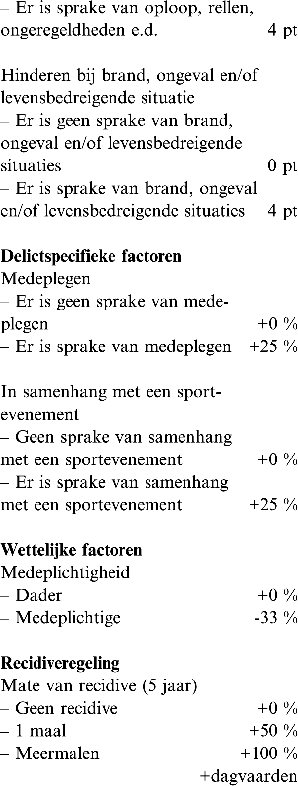 – Er is sprake van oploop, rellen,
ongeregeldheden e.d. 4 pt
Hinderen bij brand, ongeval en/of
levensbedreigende situatie
– Er is geen sprake van brand,
ongeval en/of levensbedreigende
situaties 0 pt
– Er is sprake van brand, ongeval
en/of levensbedreigende situaties 4 pt
Delictspecifieke factoren
Medeplegen
– Er is geen sprake van mede-
plegen +0 %
– Er is sprake van medeplegen +25 %
In samenhang met een sport-
evenement
– Geen sprake van samenhang
met een sportevenement +0 %
– Er is sprake van samenhang
met een sportevenement +25 %
Wettelijke factoren
Medeplichtigheid
– Dader +0 %
– Medeplichtige -33 %
Recidiveregeling
Mate van recidive (5 jaar)
– Geen recidive +0 %
– 1 maal +50 %
– Meermalen +100 %
+dagvaarden